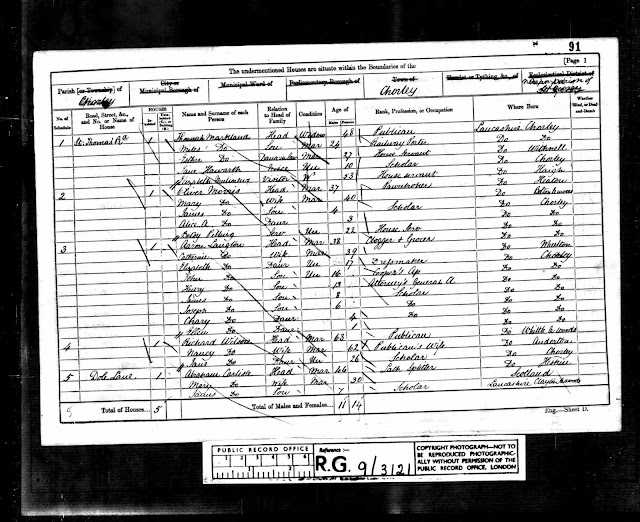 91
The undermentioned Houses are situate within the Boundaries of the
[Page 1
Parish [or Township] of Chorley
City or Municipal Borough of
Municipal Ward of
Parliamentary Borough of
Town of Chorley
Hamlet or Tything, &c., of
Ecclesiastical District of
No. of Schedule
Road, Street, &c., and No. or Name of House
HOUSES
Name and Surname of each Person
Relation to Head of Family
Condition
Age of
Males
Females
Rank, Profession, or Occupation
Where Born
Whether Blind, or Deaf-and-Dumb
1 St. Thomas Rd 1 Hannah Markland Head Widow 48 Publican Lancashire Chorley
Miles Do Son Mar 24 Railway Porter Do Do
Esther Do Daur in law Mar 27 House Servant Do Withnell
Jane Haworth Niece Un 10 Scholar Do Chorley
Elizabeth Visitor W 53 House Servant Do Haigh
2 1 Oliver Morris Head Mar 37 Pawnbroker Do Heaton
Mary Do Wife Mar 40 Do
James Do Son 4 Scholar Do Chorley
Alice A. Do Daur 3 Do Do
Betsy Pilling Serv Un 22 House Serv Do Do
3 1 Aaron Langton Head Mar 38 Clogger & Grocer Do Wheelton
Catherine Do Wife Mar 39 Do Chorley
Elizabeth Do Daur Un 17 Dressmaker Do Do
John Do Son Un 16 Cooper's Ap Do Do
Henry Do Son 13 Attorney's General A Do Do
James Do Son 8 Scholar Do Do
Joseph Do Son 6 Do Do Do
Do Daur 4 Do Do Do
Ellen Do Daur 1 Do Do
4 1 Richard Wilson Head Mar 63 Publican Do Whittle le Woods
Nancy Do Wife Mar 62 Publican's Wife Do Anderton
Jane Do Daur Un 26 Do Chorley
5 Dole Lane 1 Abraham Carlisle Head Mar 46 Do
Mary Do Wife Mar 30 Scotland
James Do Son 7 Scholar Lancashire Clayton le Woods
5 Total of Houses 5
Total of Males and Females 11 14
Eng.—Sheet D.
PUBLIC RECORD OFFICE
1 2 3 4 5 6
Reference:-
R.G. 9/3121
COPYRIGHT PHOTOGRAPH—NOT TO
BE REPRODUCED PHOTOGRAPHIC-
ALLY WITHOUT PERMISSION OF THE
PUBLIC RECORD OFFICE, LONDON